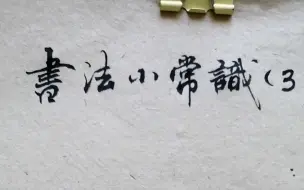 書法小常識(3